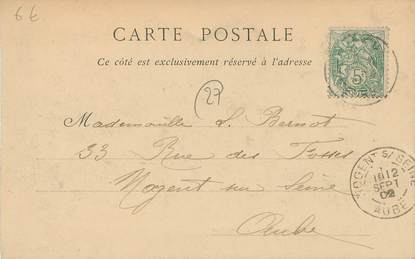 6€
CARTE POSTALE
Ce côté est exclusivement réservé à l'adresse
27
Mademoiselle S. Bernot
33 Rue des Fossés
Nogent sur Seine
Aube
5c
NOGENT S/ SEINE
12
SEPT
02
AUBE